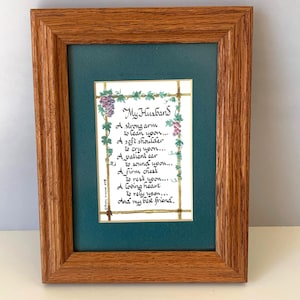 My Husband
A strong arm
to lean upon...
A soft shoulder
to cry upon...
A patient ear
to sound upon...
A firm chest
to rest upon...
A loving heart
to rely upon...
And my best friend.